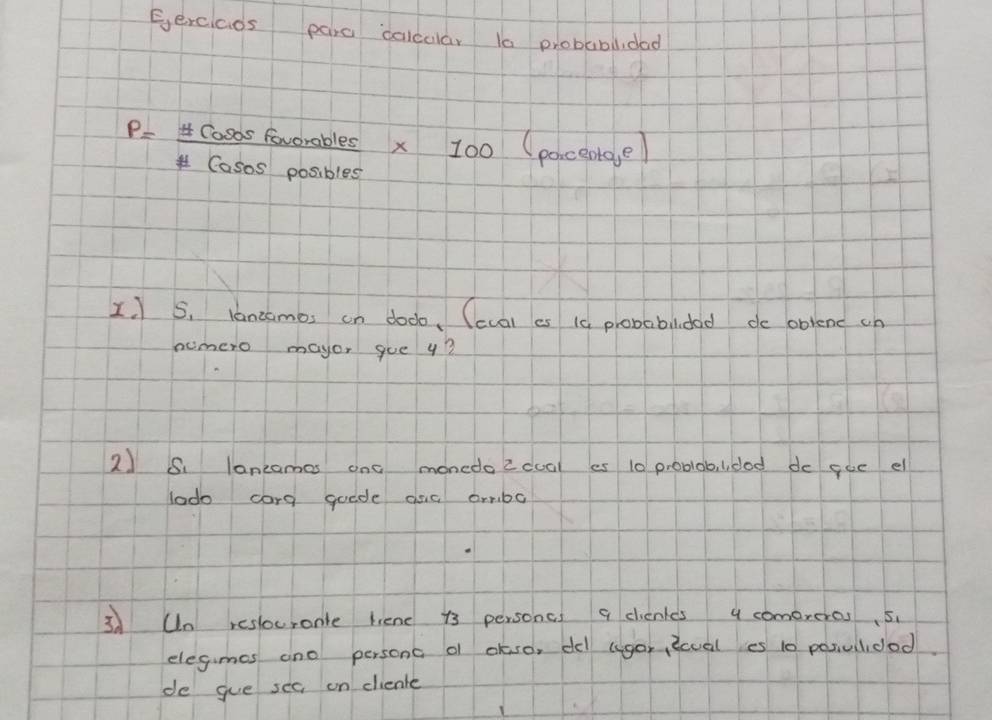 Ejercicios para calcular la probabilidad
P= # Casos favorables / # Casos posibles x 100 (porcentaje)
1.) Si lanzamos un dado, ¿cual es la probabilidad de obtene un
numero mayor que 4?
2) Si lanzamos una moneda ¿cual es la problobilidad de que el
lado cara quede asia arriba
3) Un restourante tiene 13 personas 9 clientes 4 camareros, si
elegimos una persona al de lugar, ¿cual es la
de que sea un cliente